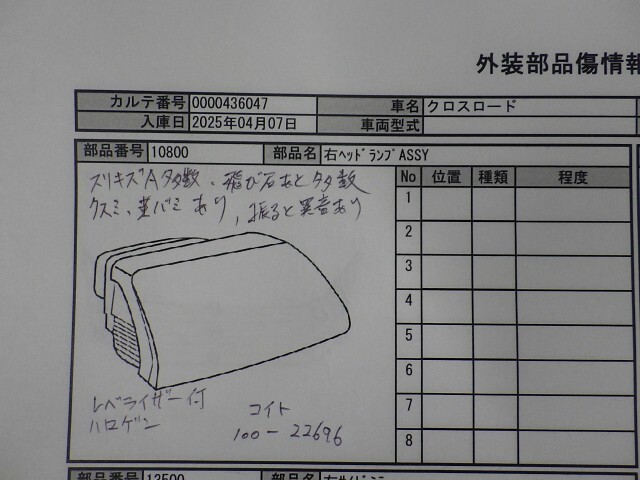 外装部品傷情報
カルテ番号 0000436047 車名 クロスロード
入庫日 2025年04月07日 車両型式
部品番号 10800 部品名 右ﾍｯﾄﾞﾗﾝﾌﾟASSY
スリキズA多数、飛び石あと多数
クスミ、黄バミあり、振ると異音あり
No 位置 種類 程度
1
2
3
4
5
6
7
8
レベライザー付
ハロゲン
コイト
100-22696
部品番号 13500 部品名